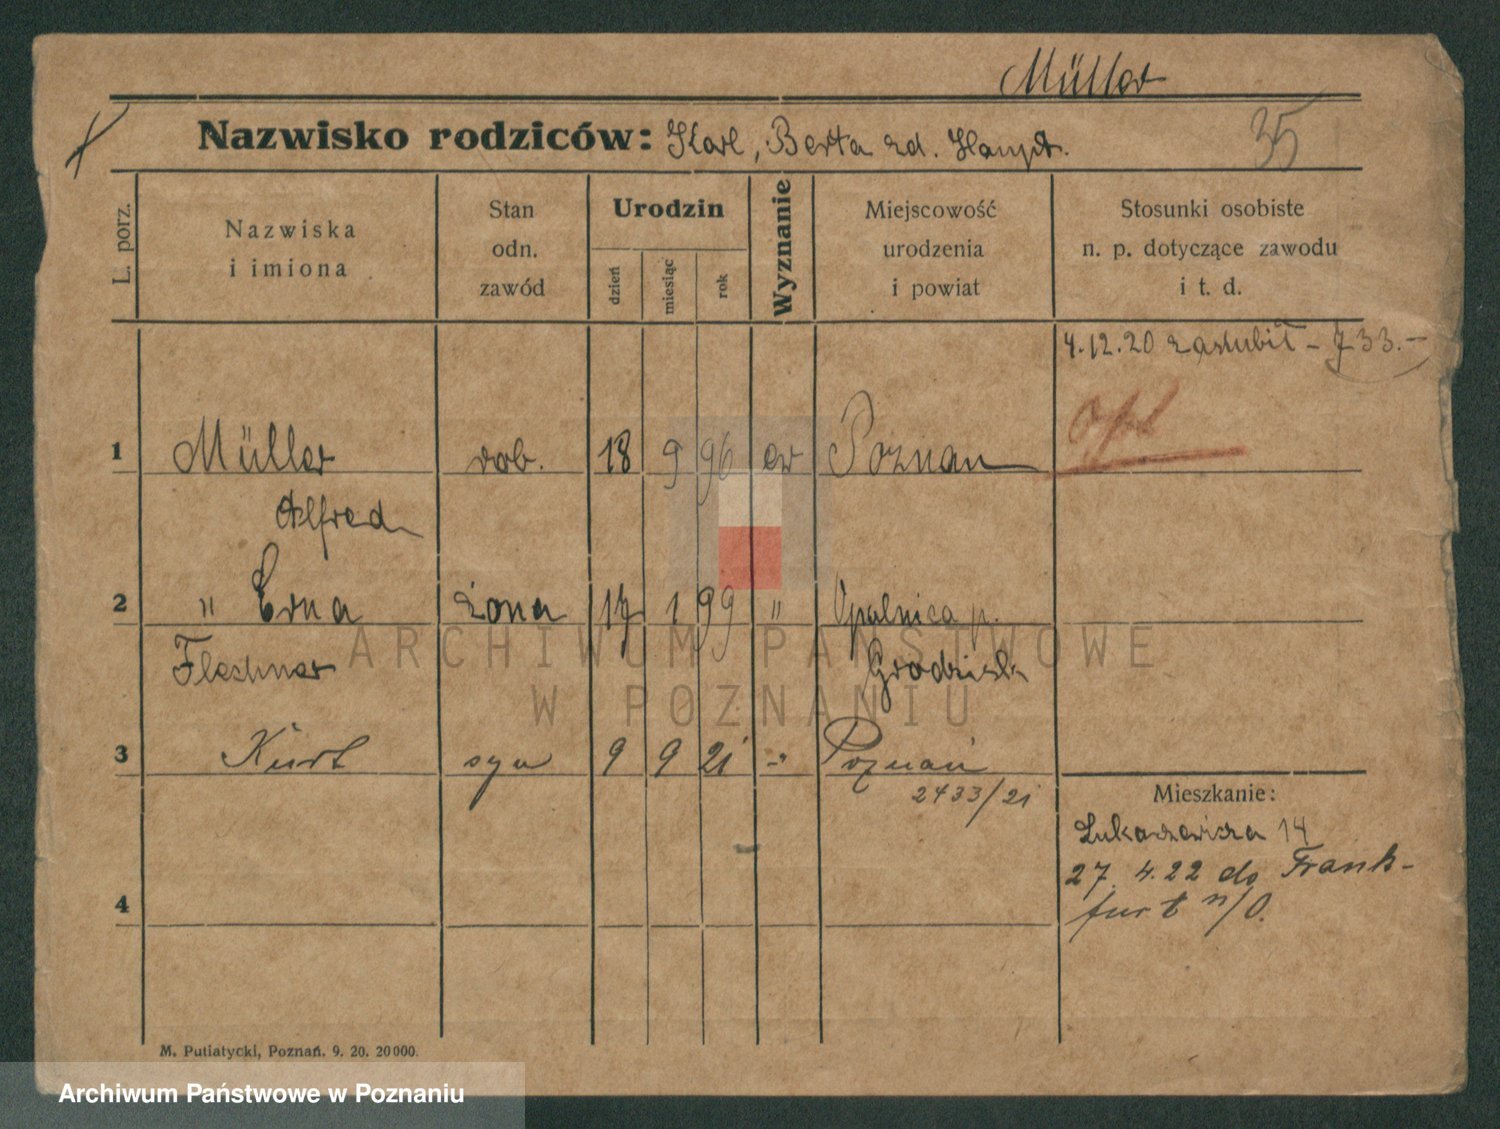 Müller
Nazwisko rodziców: Karl, Berta zd. Haupt.
35
L. porz.
Nazwiska
i imiona
Stan
odn.
zawód
Urodzin
dzień
miesiąc
rok
Wyznanie
Miejscowość
urodzenia
i powiat
Stosunki osobiste
n. p. dotyczące zawodu
i t. d.
4.12.20 zaślubił - 733.-
opt
1 Müller rob. 18 9 96 ew Poznań
Alfred
2 " Erna żona 17 1 99 " Opalnica p.
Fleshner Grodzisk
3 Kurt syn 9 9 21 -"- Poznań
2433/21
Mieszkanie:
Łukaszewicza 14
27. 4.22 do Frank-
furt n/O.
4
M. Putiatycki, Poznań. 9. 20. 20000.
ARCHIWUM PAŃSTWOWE
W POZNANIU
Archiwum Państwowe w Poznaniu